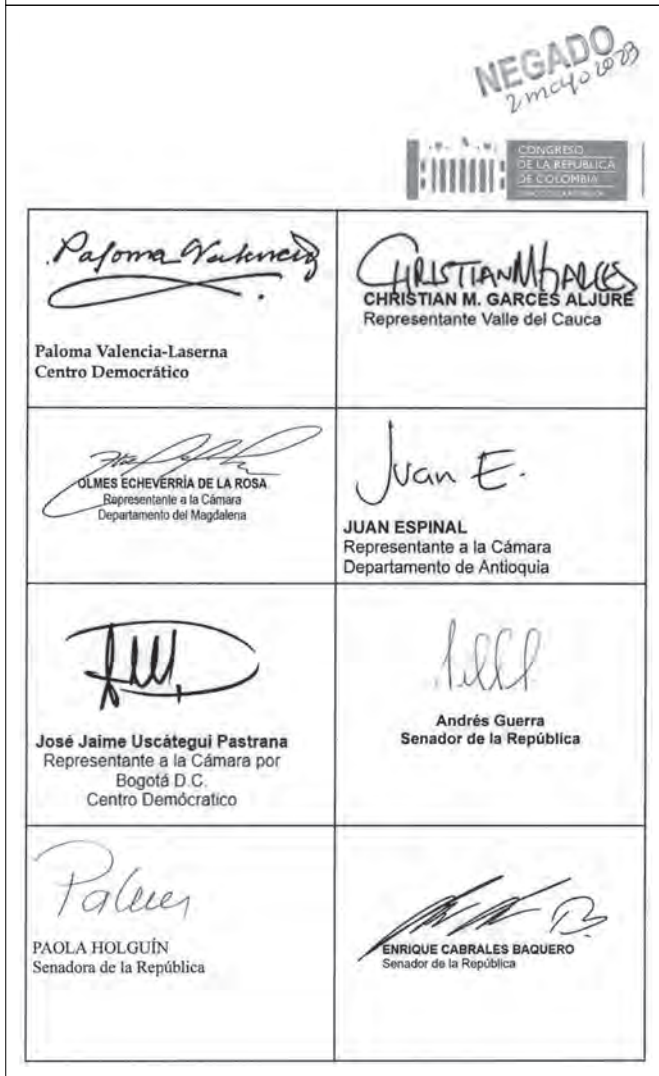 NEGADO
2 mayo 2023
CONGRESO
DE LA REPÚBLICA
DE COLOMBIA
Paloma Valencia
Paloma Valencia-Laserna
Centro Democrático
CHRISTIAN M GARCES
CHRISTIAN M. GARCÉS ALJURE
Representante Valle del Cauca
OLMES ECHEVERRÍA DE LA ROSA
Representante a la Cámara
Departamento del Magdalena
Juan E.
JUAN ESPINAL
Representante a la Cámara
Departamento de Antioquia
José Jaime Uscátegui Pastrana
Representante a la Cámara por
Bogotá D.C.
Centro Demócratico
Andrés Guerra
Senador de la República
PAOLA HOLGUÍN
Senadora de la República
ENRIQUE CABRALES BAQUERO
Senador de la República